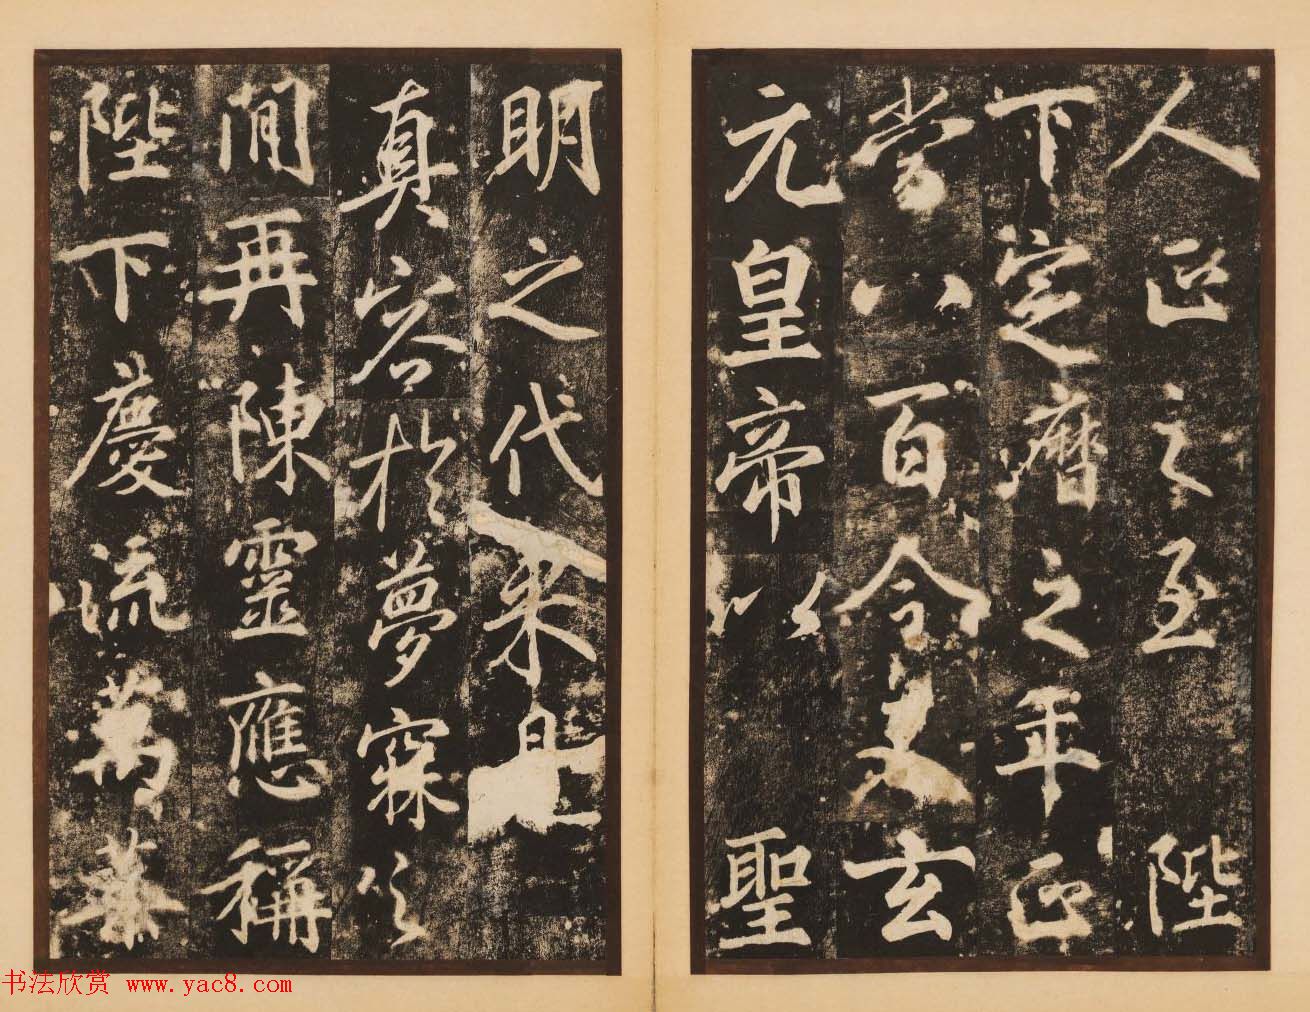 人正之至陛
下定曆之年正
當八百今玄
元皇帝以聖
明之代來
真容於夢寐之
間再陳靈應稱
陛下慶流萬葉
书法欣赏 www.yac8.com